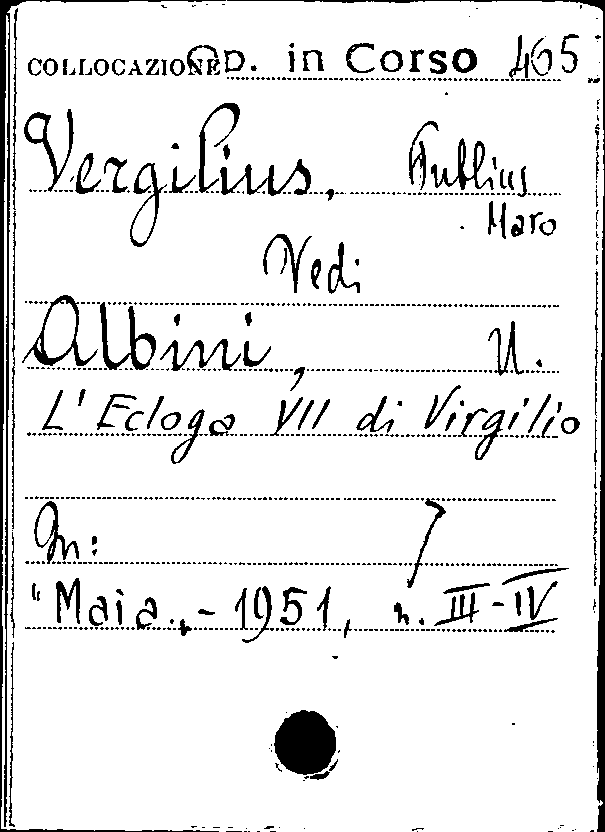 COLLOCAZIONE Op. in Corso 465
Vergilius, Publius
Maro
Vedi
Albini, U.
L'Ecloga VII di Virgilio
In:
"Maia„ - 1951, n. III-IV